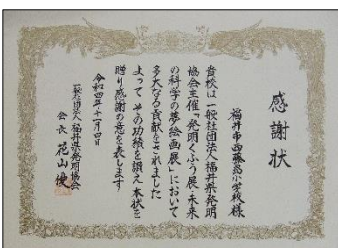 感謝状
福井市西藤島小学校様
貴校は一般社団法人福井県発明
協会主催「発明くふう展・未来
の科学の夢絵画展」において
多大なる貢献をされました
よって その功績を讃え 本状を
贈り感謝の意を表します
令和四年十一月四日
一般社団法人福井県発明協会
会長 花山 優